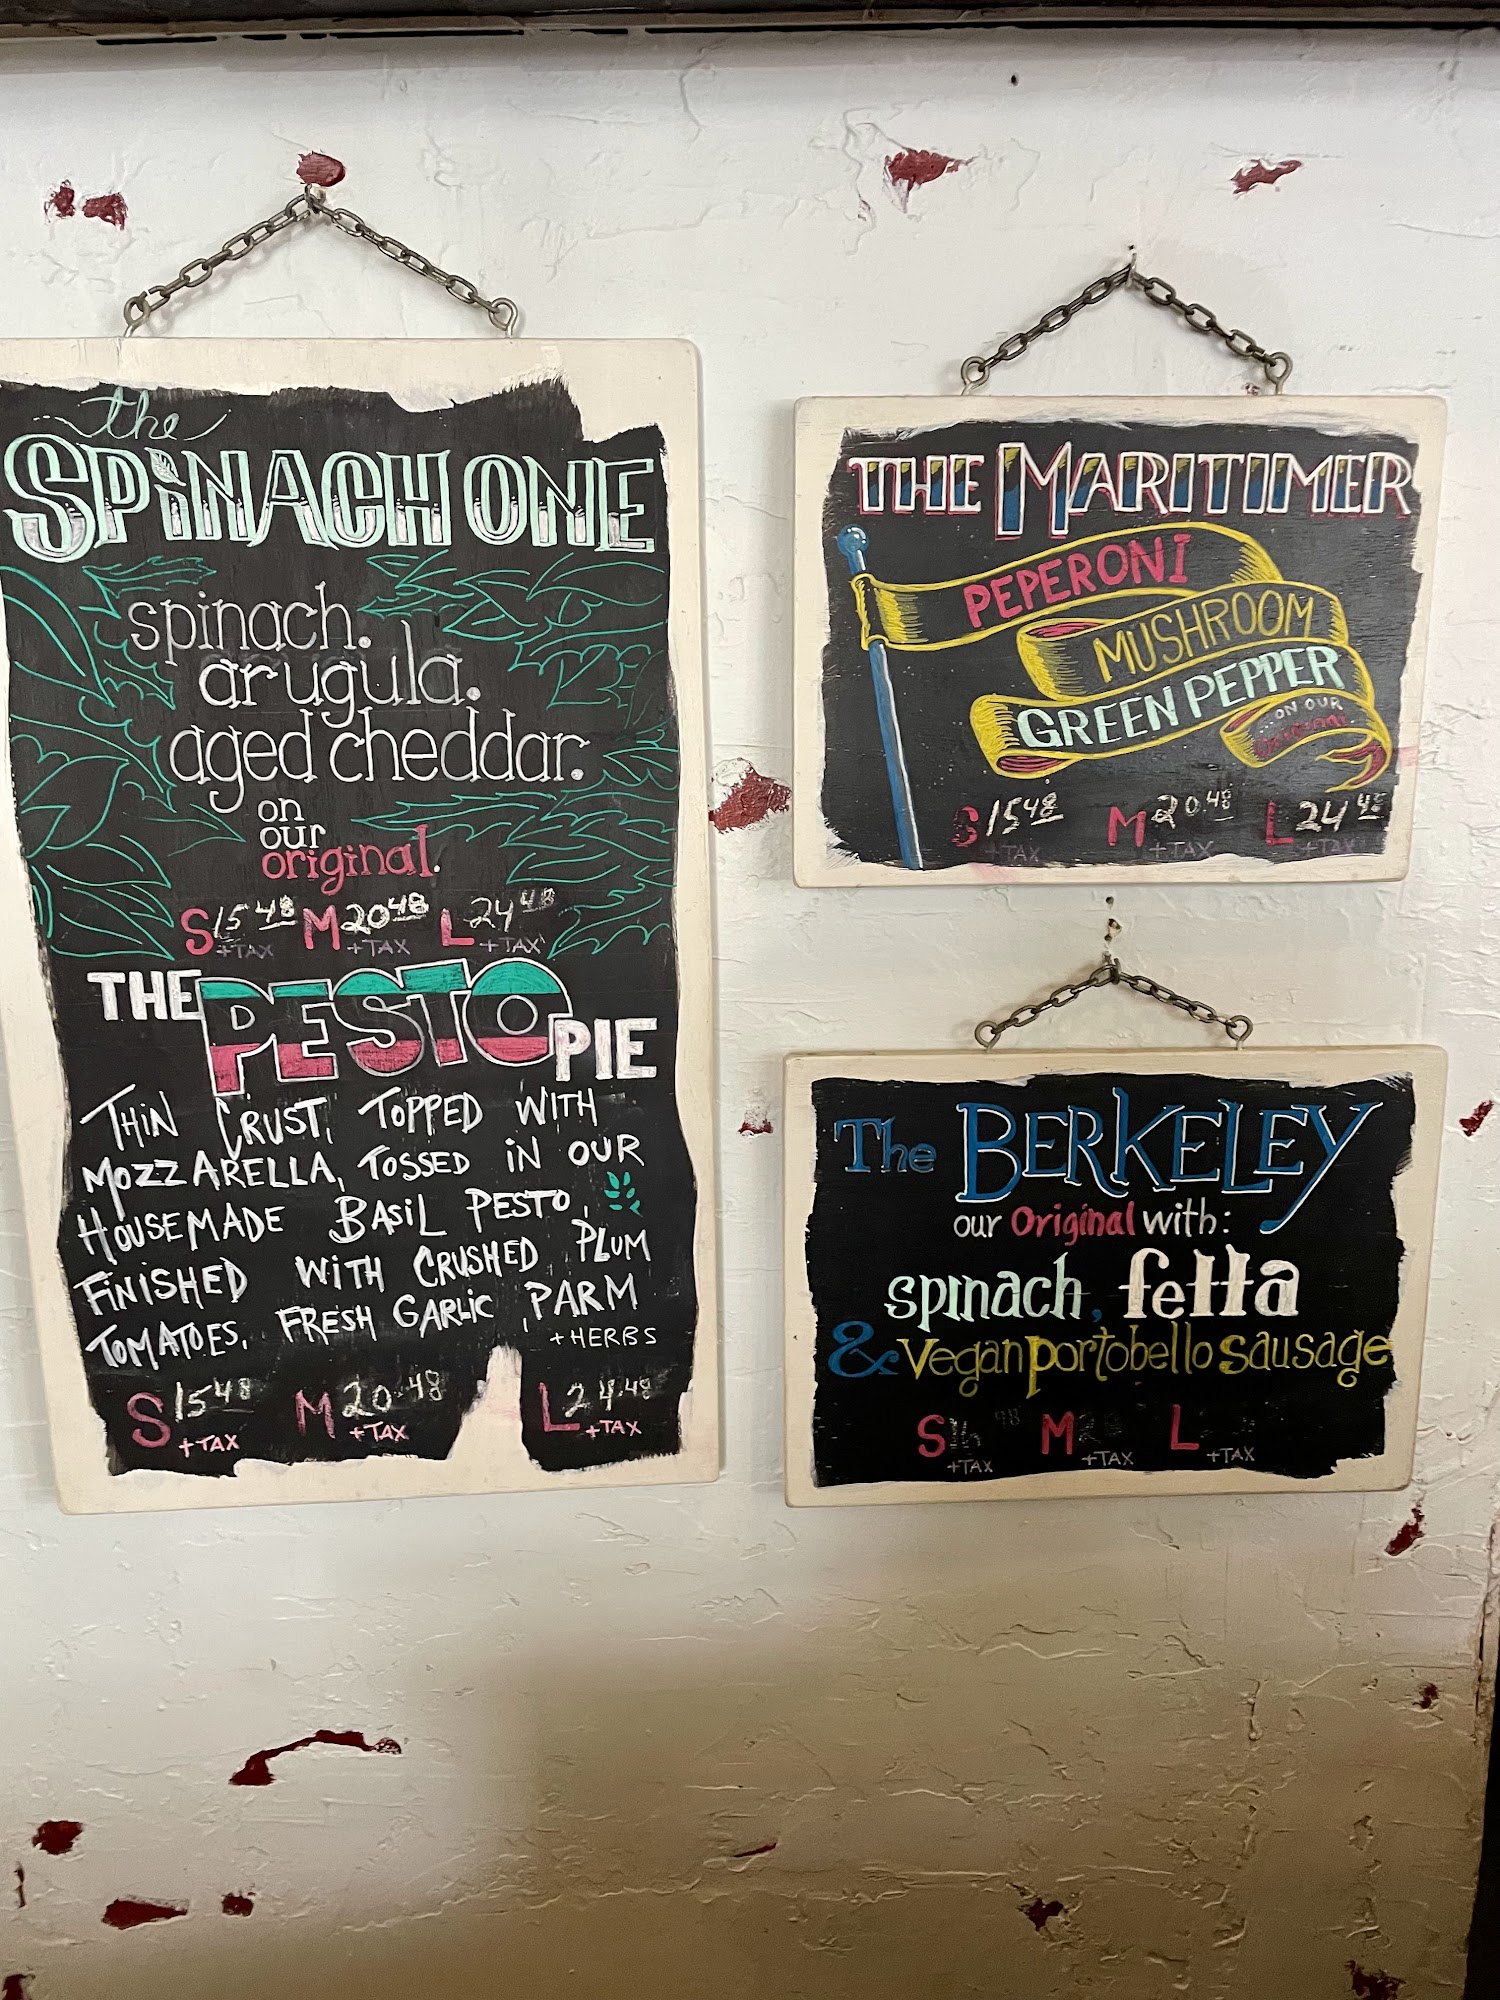 the
SPINACH ONE
spinach.
arugula.
aged cheddar.
on
our
original.
S 15 48 M 20 48 L 24 48
+TAX +TAX +TAX
THE PESTO PIE
THIN CRUST, TOPPED WITH
MOZZARELLA, TOSSED IN OUR
HOUSEMADE BASIL PESTO,
FINISHED WITH CRUSHED PLUM
TOMATOES, FRESH GARLIC, PARM
+HERBS
S 15 48 M 20.48 L 24.48
+TAX +TAX +TAX
THE MARITIMER
PEPERONI
MUSHROOM
GREEN PEPPER
...ON OUR
Original.
S 15 48 M 20.48 L 24 48
+TAX +TAX +TAX
The BERKELEY
our Original with:
spinach, fetta
& Vegan portobello sausage
S M L
+TAX +TAX +TAX